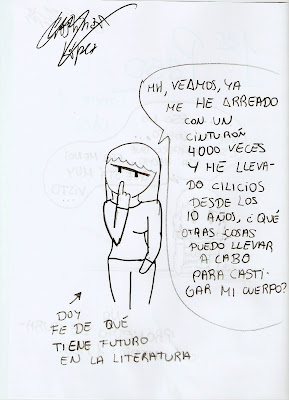 MM, VEAMOS, YA
ME HE ARREADO
CON UN
CINTURÓN
4000 VECES
Y HE LLEVA-
DO CILICIOS
DESDE LOS
10 AÑOS, ¿QUÉ
OTRAS COSAS
PUEDO LLEVAR
A CABO
PARA CASTI-
GAR MI CUERPO?
DOY
FE DE QUE
TIENE FUTURO
EN LA LITERATURA